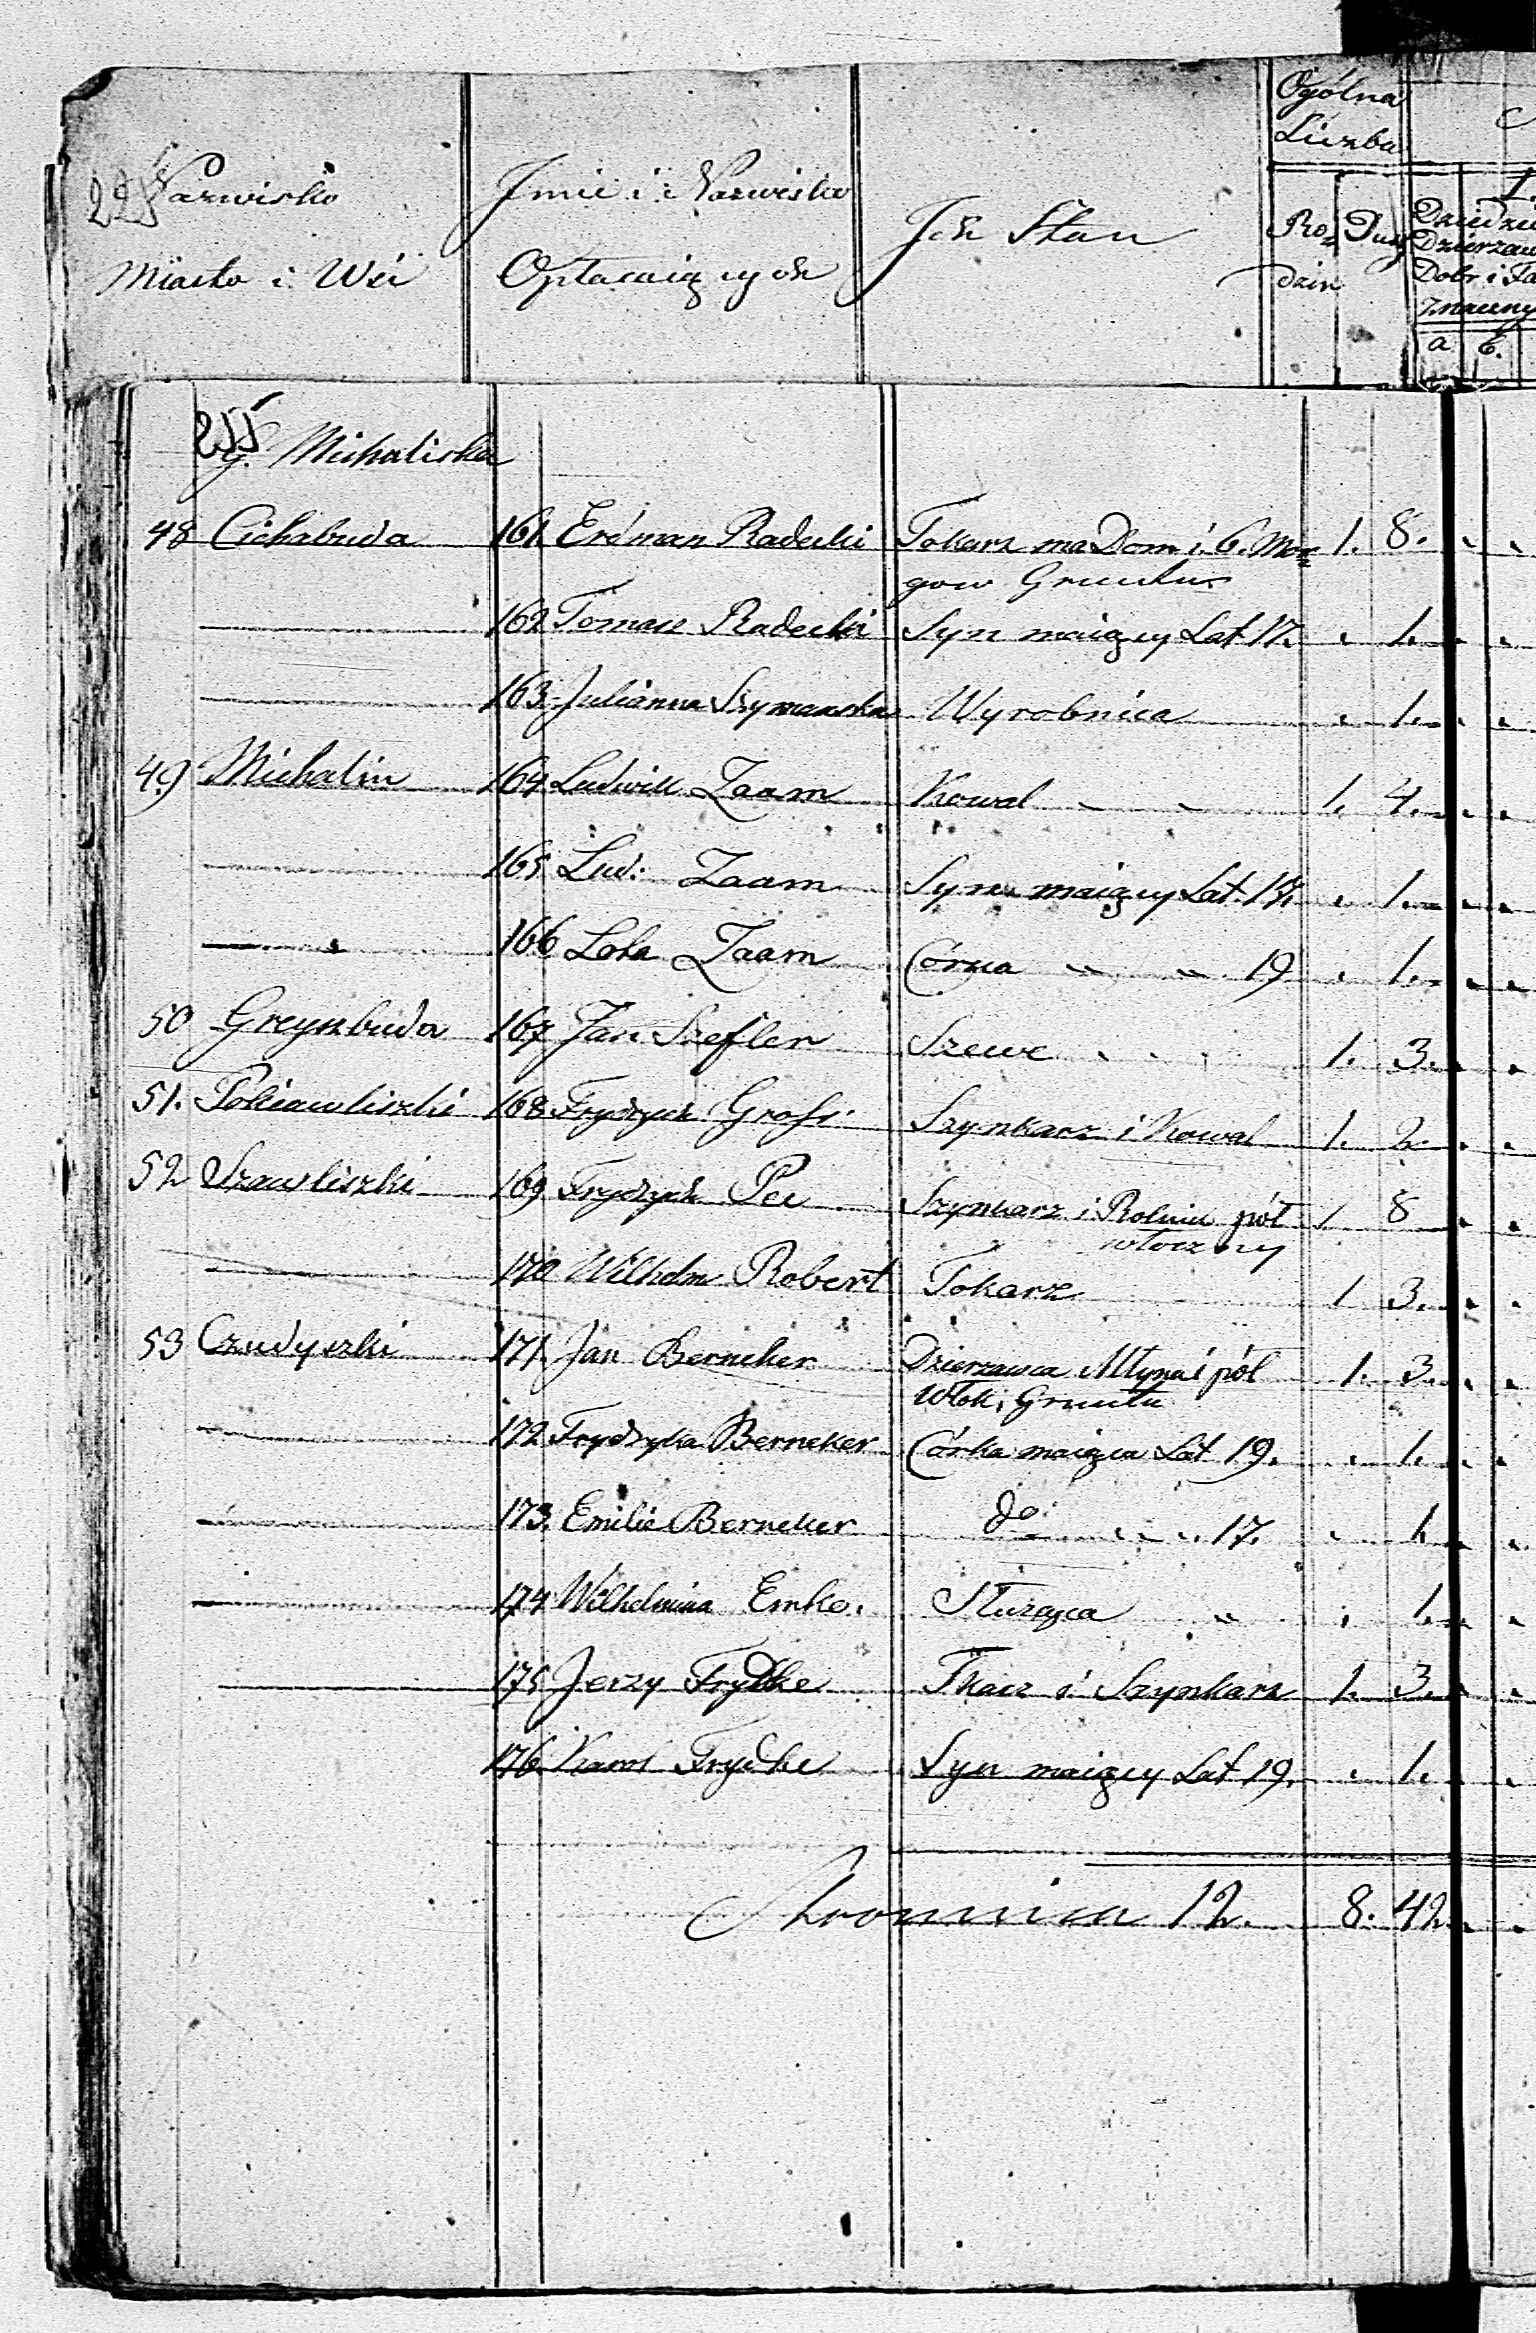 Ogólna
Liczba
Nazwisko
Imie i Nazwisko
Ich Stan
Miasta i Wsi
Opłacaiących
Ro-
dzin
Dusz
1.
Dziedzi
Dzierzaw
Dobr i
Znaczny
a b.
255
G. Michaliska
48 Cichabuda 161. Erdman Radecki Tokarz ma Dom i 6. Mor= 1. 8.
gow Gruntu
162 Tomasz Radecki Syn maiący Lat 17. 1.
163. Julianna Szymanska Wyrobnica 1.
49 Michalin 164 Ludwik Zaam Kowal 1. 4.
165 Lud: Zaam Syn maiący Lat. 17. 1.
166 Lola Zaam Córka " " 19 1.
50 Greyzbuda 167 Jan Szefler Szewc 1. 3.
51. Pokiawliszki 168 Frydrych Gross. Szynkarz i Kowal 1. 2.
52 Szawliszki 169 Frydrych Pec Szynkarz i Rolnik pół 1 8
włoczny
170 Wilhelm Robert Tokarz 1 3.
53 Czudyszki 171. Jan Berneker Dzierzawca Młyna i pół 1. 3.
Włok: Gruntu
172 Frydryka Berneker Córka maiąca Lat 19. 1.
173. Emilie Berneker do " " 17. 1.
174 Wilhelmina Emke. Służąca " 1.
175 Jerzy Frydke Tkacz i Szynkarz 1. 3.
176. Karol Frydke Syn maiący Lat 19. 1.
Stronnica 12. 8. 42